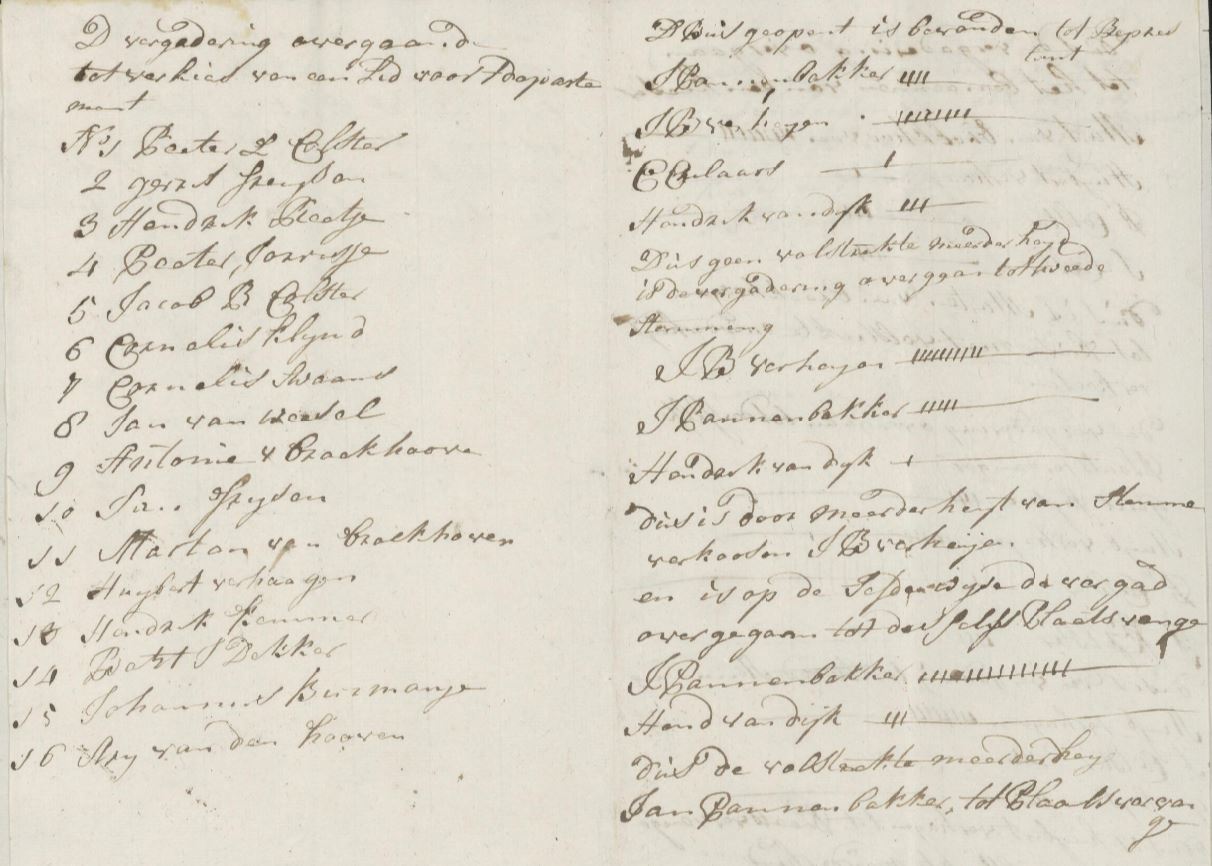 D vergadering overgaande
tot verkies van een Lid voor t departe
ment
No 1 Peeter Z Colster
2 gerrit Spuyson
3 Hendrik Pleetje
4 Peeter Jorrisse
5 Jacob B Colster
6 Cornelis Klynd
7 Cornelis Swaans
8 Jan van weesel
9 Antonie v broekhoove
10 Spuyson
11 Marten van broekhoven
12 Huybert verhaagen
13 Hendrik Kemmer
14 S Dekker
15 Johannes Buzmanje
16 Ary van den hooven
Dbus geopent is bevonden tot Repres
ent
J Pannenbakker IIIII
J B verheyen IIIIIIIII
C Culaars I
Hendrik van dijk III
Dus geen volstrekte meerder heyd
is de vergadering overgegaan tot tweede
Stemming
J B verheyen IIIIIIIII
J Pannenbakker IIIII
Hendrik van dijk I
dus is door meerderheyt van Stemme
verkooren J B verheijen
en is op de Selfde wyse de vergad
overgegaan tot des selfs Plaatsvange
r
J Pannenbakker IIIIIIIIIIIII
Hend van dijk III
dus de volstrekte meerderhey
Jan Pannenbakker, tot Plaatsvervan
ge